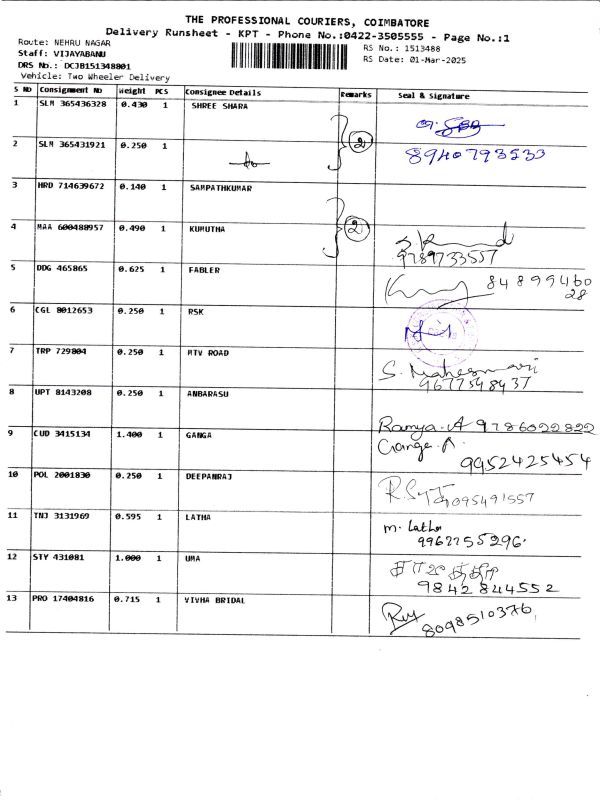 THE PROFESSIONAL COURIERS, COIMBATORE
Delivery Runsheet - KPT - Phone No.:0422-3505555 - Page No.:1
Route: NEHRU NAGAR
RS No.: 1513488
Staff: VIJAYABANU
RS Date: 01-Mar-2025
DRS No.: DCJB151348801
Vehicle: Two Wheeler Delivery
S No Consignment No Weight PCS Consignee Details Remarks Seal & Signature
1 SLM 365436328 0.430 1 SHREE SHARA
2 SLM 365431921 0.250 1 2 8940793533
3 HRD 714639672 0.140 1 SAMPATHKUMAR
4 MAA 600488957 0.490 1 KUMUTHA 2
9789733557
5 DDG 465865 0.625 1 FABLER 84899460
28
6 CGL 8012653 0.250 1 RSK
7 TRP 729804 0.250 1 MTV ROAD S. Maheswari
9677548437
8 UPT 8143208 0.250 1 ANBARASU Ramya.A 9786022822
9 CUD 3415134 1.400 1 GANGA Ganga.A
9952425454
10 POL 2001830 0.250 1 DEEPANRAJ 7095491557
11 TNJ 3131969 0.595 1 LATHA m. Latha
9962755296.
12 STY 431081 1.000 1 UMA
9842844552
13 PRO 17404816 0.715 1 VIVHA BRIDAL 8098510376